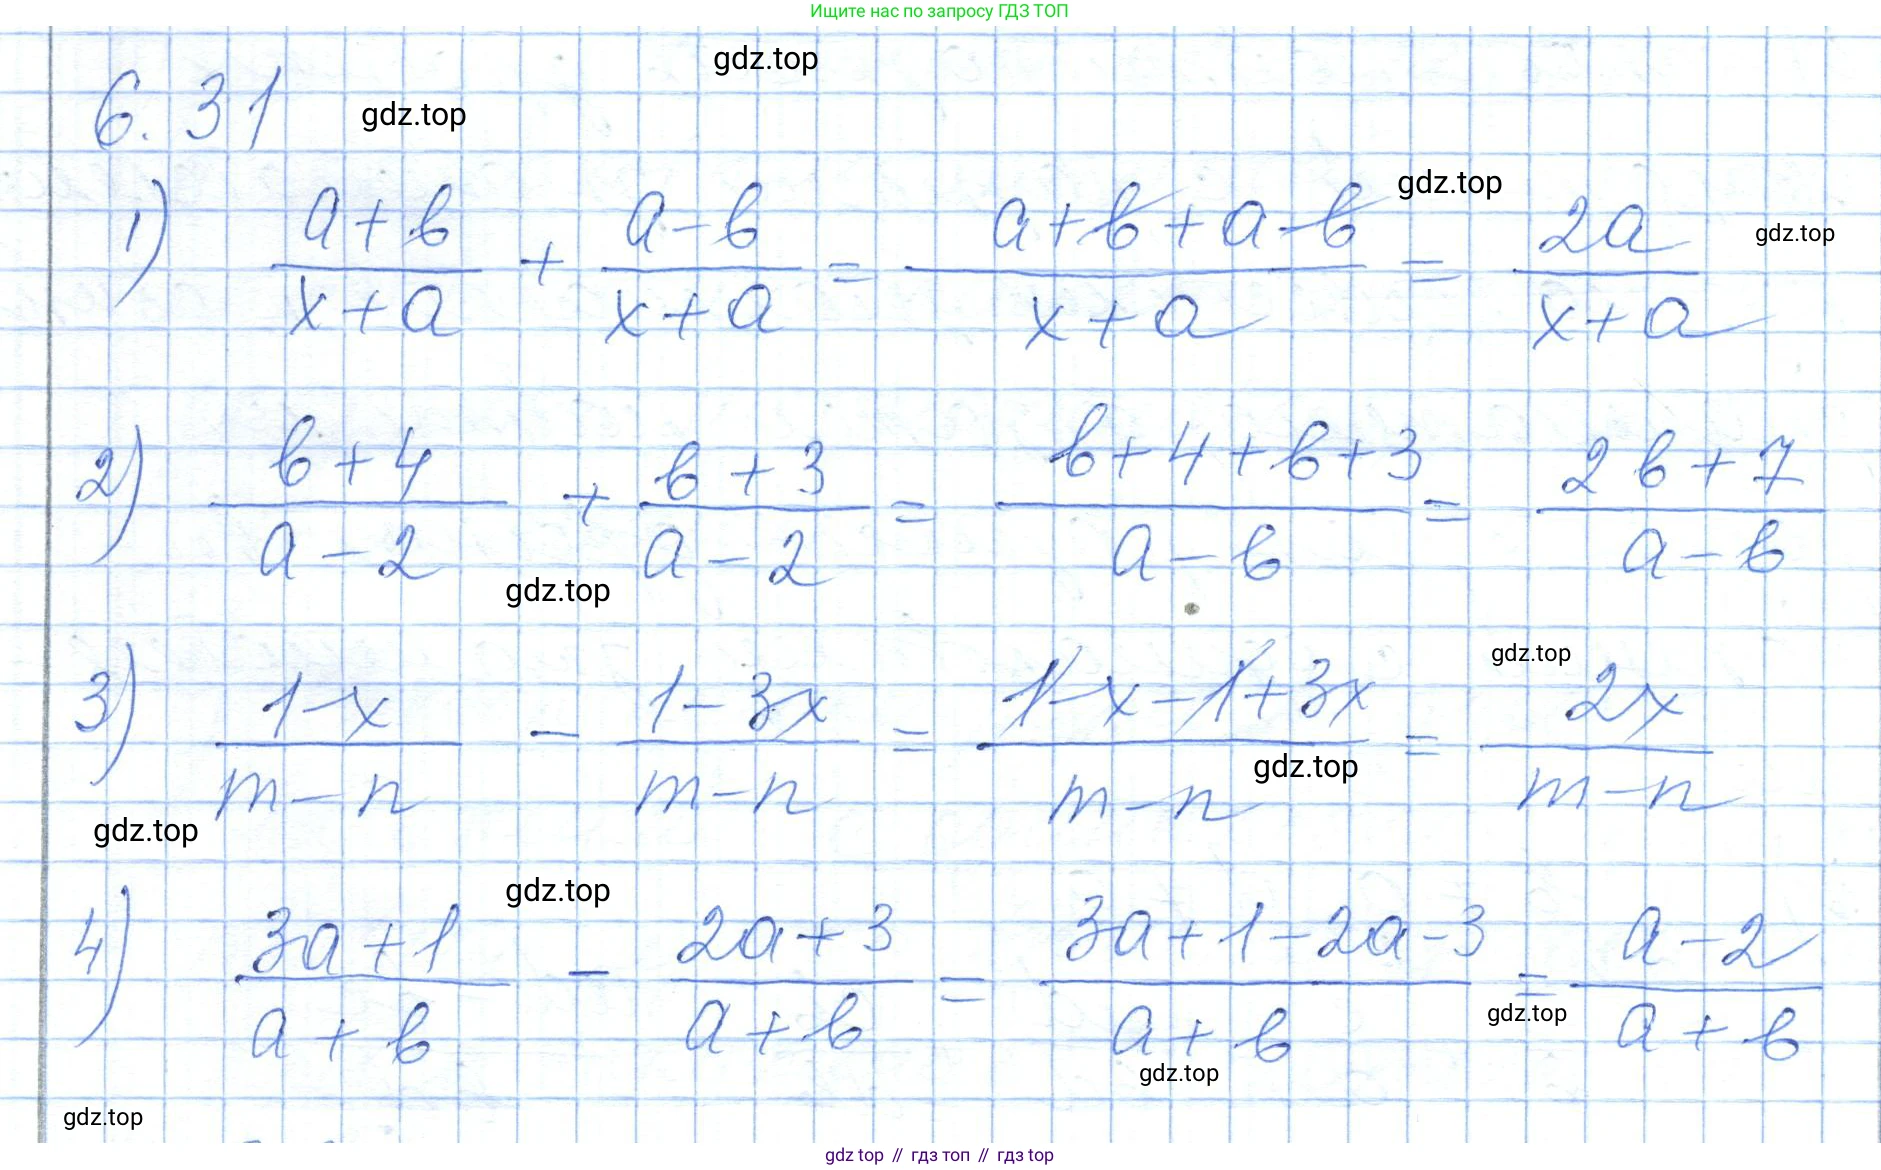 Ищите нас по запросу ГДЗ ТОП
gdz.top
6.31 gdz.top
gdz.top
1) (a+b)/(x+a) + (a-b)/(x+a) = (a+b+a-b)/(x+a) = 2a/(x+a) gdz.top
2) (b+4)/(a-2) + (b+3)/(a-2) = (b+4+b+3)/(a-b) = (2b+7)/(a-b)
gdz.top
gdz.top
3) (1-x)/(m-n) - (1-3x)/(m-n) = (1-x-1+3x)/(m-n) = 2x/(m-n)
gdz.top
gdz.top
gdz.top
4) (3a+1)/(a+b) - (2a+3)/(a+b) = (3a+1-2a-3)/(a+b) = (a-2)/(a+b)
gdz.top
gdz.top
gdz.top
gdz top // гдз топ // гдз top